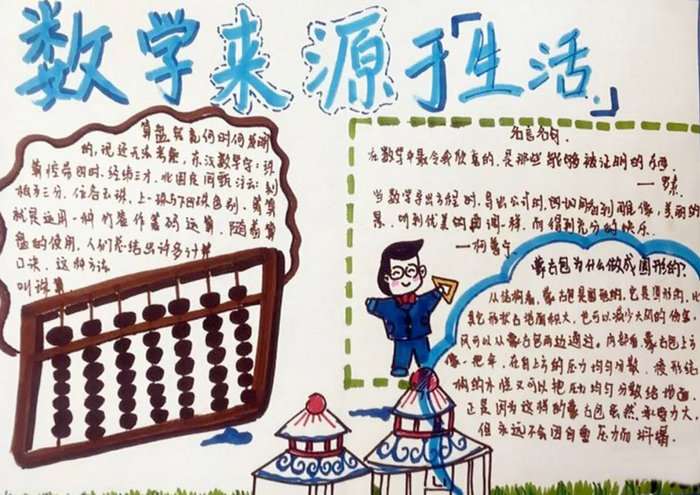 数学来源于「生活」
算盘究竟何时何发明
的，现还无法考。东汉数学：珠
算控带四时，经纬三才，北周注云：刻
板为三分，位各五珠，上一珠与下四珠色别，筹算
就是运用一种竹签作筹码运算，随着算
盘的使用，人们总结出许多计算
口诀，这种方法
叫珠算
名言名句
在数学中最令我欣喜的，是那些能够被证明的东西
——罗素
当数学家导出方程时，导出公式时，如同看到雕像，美丽的
景，听到优美的曲调一样，而得到充分的快乐。
——柯普宁
蒙古包为什么做成圆形的？
从结构看，蒙古包是圆形的，它是圆形的，
其它形状占地面积大，也可以减少大风的
风可以从蒙古包两边通过。内部看，蒙古包上方
像一把伞，在自上方的压力均匀分散，菱形结
构的木性又可以把压力均匀分散给地面
正是因为这样的蒙古包虽然承受力大，
但永远不会因自重压力而坍塌